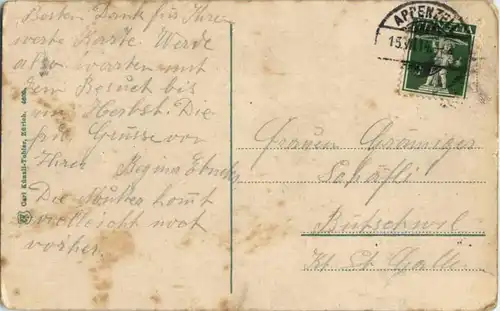 Besten Dank für Ihre
werte Karte. Werde
also warten mit
dem Besuch bis
im Herbst. Die
Grüsse von
Ihrer Regina Ebneter
Die Mutter komt
vielleicht noch
vorher.
Carl Künzli-Tobler, Zürich.
APPENZELL
Frauen Gräminger
Schäfli
Bütschwil
Kt. St. Gallen